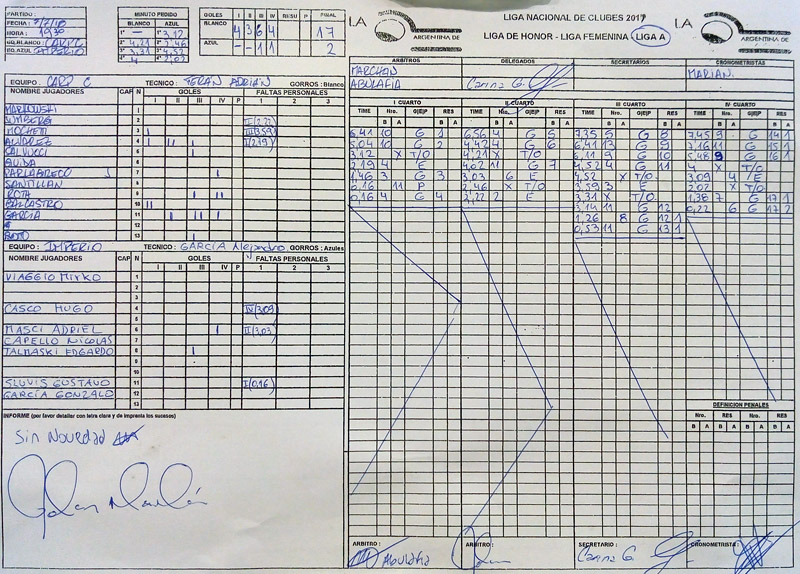 PARTIDO :
FECHA : 7/7/18
HORA : 1930
GO.BLANCO : CARP C
GO.AZUL : IMPERIO
MINUTO PEDIDO
BLANCO AZUL
1º — 1º 3,12
2º 4,21 2º 2,46
3º 3,31 3º 4,52
4º 4º 2,02
GOLES I II III IV RESU P FINAL
BLANCO 4 3 6 4 17
AZUL — — 1 1 2
EQUIPO : CARP C TECNICO : TERÁN ADRIÁN GORROS : Blanco
NOMBRE JUGADORES CAP N GOLES FALTAS PERSONALES
I II III IV P 1 2 3
MARKOWSKI 1
2 II(2,22)
3 III(3,59)
ALVAREZ 4 II(2,19)
5
6
7
SANTILLAN 8
ROTA 9
10
GARCIA 11
12
13
EQUIPO : IMPERIO TECNICO : GARCÍA Alejandro GORROS : Azules
NOMBRE JUGADORES CAP N GOLES FALTAS PERSONALES
I II III IV P 1 2 3
VIAGGIO MIRKO 1
CASCO HUGO 4 IV(3,09)
MASCI ADRIEL 6 II(3,03)
CAPELLO NICOLAS 7
TALMASKI EDGARDO 8
SLUVIS GUSTAVO 11 I(0,16)
GARCÍA GONZALO 12
13
INFORME (por favor detallar con letra clara y de imprenta los sucesos)
Sin Novedad
LA ARGENTINA DE
LIGA NACIONAL DE CLUBES 2017
LIGA DE HONOR - LIGA FEMENINA LIGA A
LA ARGENTINA DE
ARBITROS DELEGADOS SECRETARIOS CRONOMETRISTAS
MARCHAN Carina G. MARIAN.
ABULAFIA
I CUARTO II CUARTO III CUARTO IV CUARTO
TIME Nro. G|E|P RES TIME Nro. G|E|P RES TIME Nro. G|E|P RES TIME Nro. G|E|P RES
B A B A B A B A B A B A B A B A
6,41 10 G 1 6,56 4 G 5 7,35 9 G 8 7,45 9 G 14 1
5,04 10 G 2 4,42 4 G 6 6,41 13 G 9 7,16 11 G 15 1
3,12 X T/O 4,21 X T/O 6,11 9 G 10 5,48 9 G 16 1
2,19 4 E 4,02 11 G 7 4,52 4 G 11 4 X T/O
1,46 3 G 3 3,03 6 E 4,52 X T/O 3,09 4 E
0,16 11 P 2,46 X T/O 3,59 3 E 2,02 X T/O
0,16 4 G 4 2,22 2 E 3,31 X T/O 1,38 7 G 17 1
3,14 11 G 12 0,22 6 G 17 2
1,26 8 G 12 1
0,53 11 G 13 1
DEFINICION PENALES
Nro. RES Nro. RES
B A B A B A B A
ARBITRO : Abulafia ARBITRO : SECRETARIO : Carina G. CRONOMETRISTA :